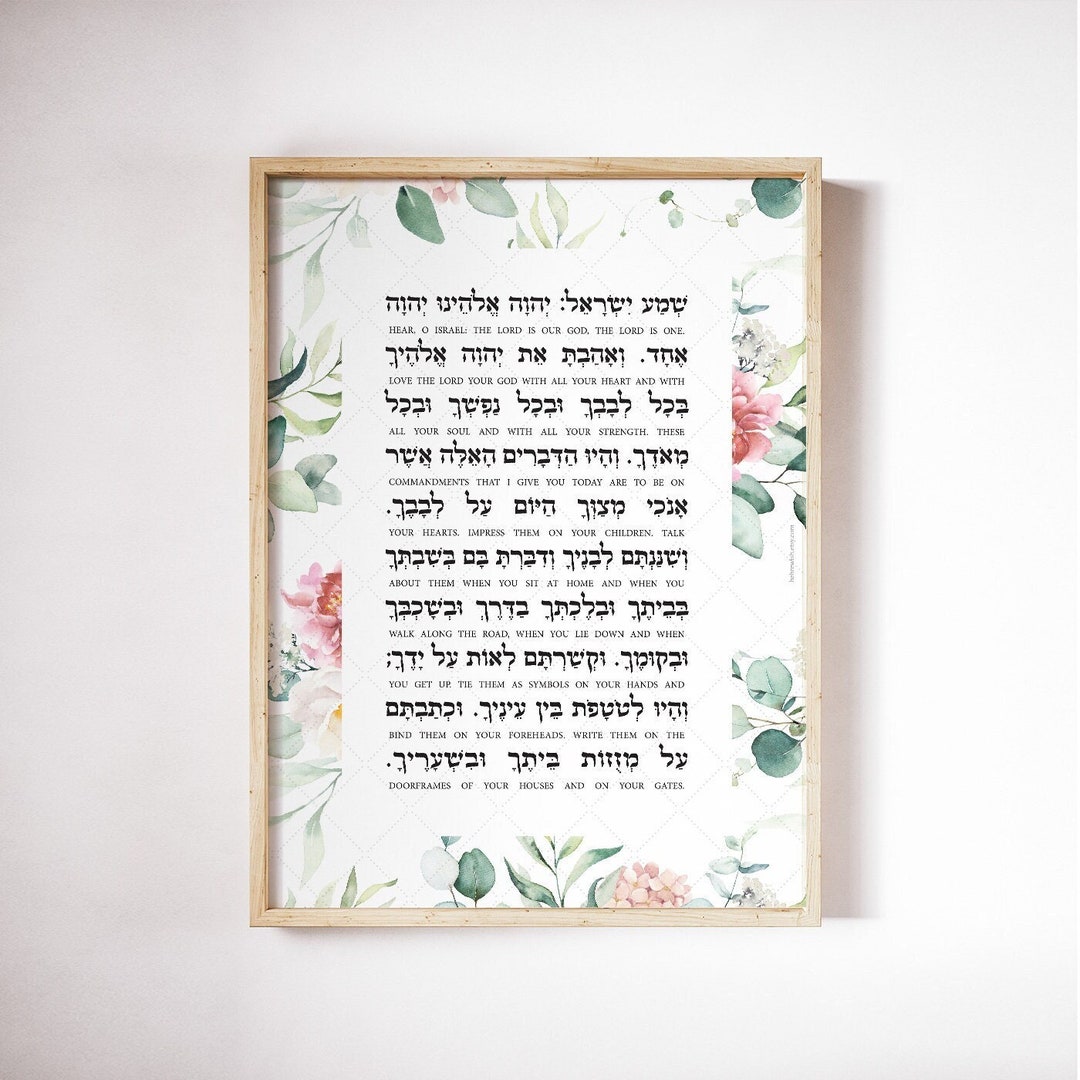 שְׁמַע יִשְׂרָאֵל: יְהוָה אֱלֹהֵינוּ יְהוָה
HEAR, O ISRAEL: THE LORD IS OUR GOD, THE LORD IS ONE.
אֶחָד. וְאָהַבְתָּ אֵת יְהוָה אֱלֹהֶיךָ
LOVE THE LORD YOUR GOD WITH ALL YOUR HEART AND WITH
בְּכָל לְבָבְךָ וּבְכָל נַפְשְׁךָ וּבְכָל
ALL YOUR SOUL AND WITH ALL YOUR STRENGTH. THESE
מְאֹדֶךָ. וְהָיוּ הַדְּבָרִים הָאֵלֶּה אֲשֶׁר
COMMANDMENTS THAT I GIVE YOU TODAY ARE TO BE ON
אָנֹכִי מְצַוְּךָ הַיּוֹם עַל לְבָבֶךָ.
YOUR HEARTS. IMPRESS THEM ON YOUR CHILDREN. TALK
וְשִׁנַּנְתָּם לְבָנֶיךָ וְדִבַּרְתָּ בָּם בְּשִׁבְתְּךָ
ABOUT THEM WHEN YOU SIT AT HOME AND WHEN YOU
בְּבֵיתֶךָ וּבְלֶכְתְּךָ בַדֶּרֶךְ וּבְשָׁכְבְּךָ
WALK ALONG THE ROAD, WHEN YOU LIE DOWN AND WHEN
וּבְקוּמֶךָ. וּקְשַׁרְתָּם לְאוֹת עַל יָדֶךָ;
YOU GET UP. TIE THEM AS SYMBOLS ON YOUR HANDS AND
וְהָיוּ לְטֹטָפֹת בֵּין עֵינֶיךָ. וּכְתַבְתָּם
BIND THEM ON YOUR FOREHEADS. WRITE THEM ON THE
עַל מְזֻזוֹת בֵּיתֶךָ וּבִשְׁעָרֶיךָ.
DOORFRAMES OF YOUR HOUSES AND ON YOUR GATES.